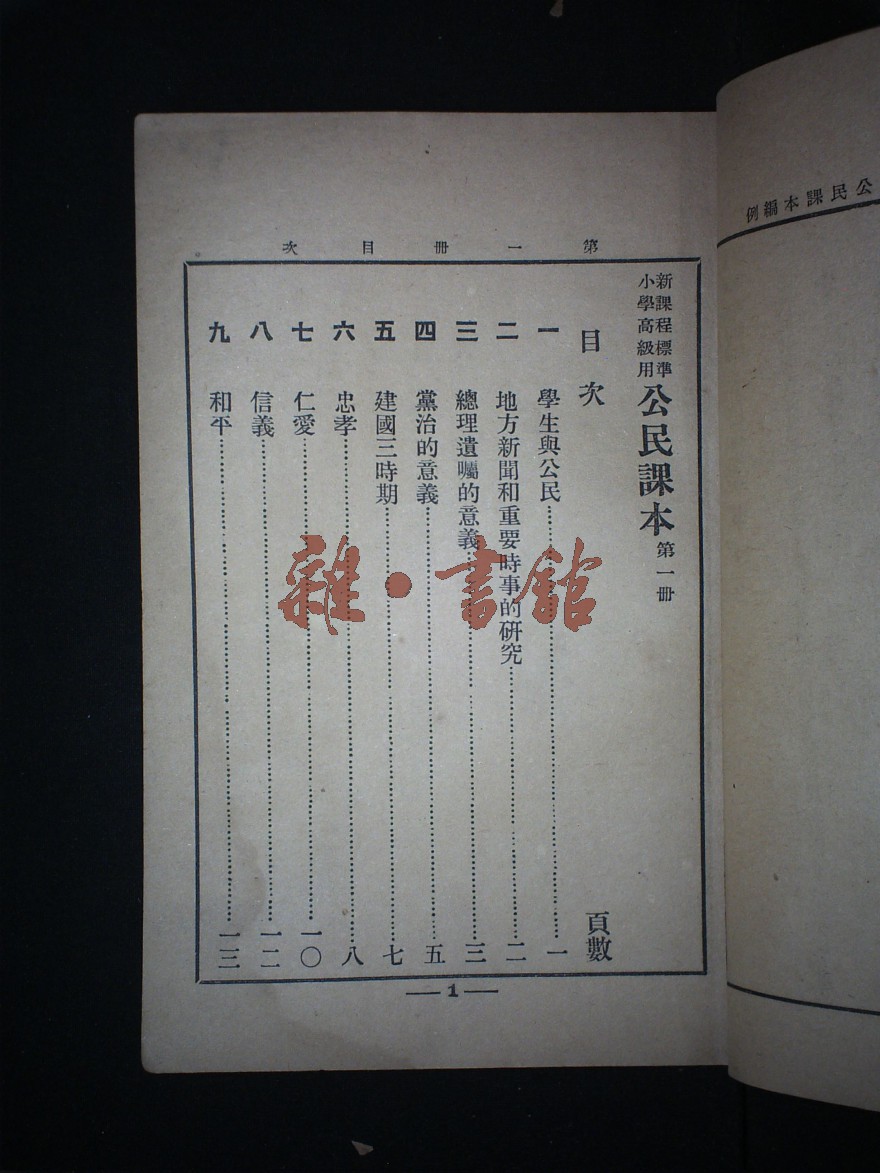 公民課本編例
第一冊目次
新課程標準
小學高級用
公民課本 第一冊
目次 頁數
一 學生與公民 一
二 地方新聞和重要時事的研究 二
三 總理遺囑的意義 三
四 黨治的意義 五
五 建國三時期 七
六 忠孝 八
七 仁愛 一〇
八 信義 一二
九 和平 一三
1
雜·書館